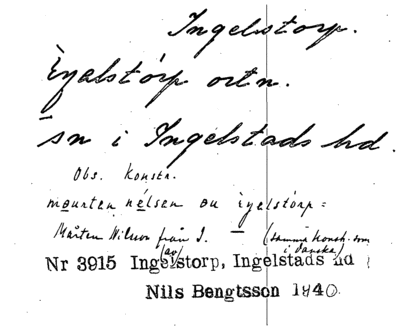 Ingelstorp.
èŋalstórp ortn.
sn i Ingelstads hd.
Obs. Konstr.
maurten nélsen au èŋelstórp =
Mårten Nilsson från I. — (samma konstr. som
(av) i danska)
Nr 3915 Ingelstorp, Ingelstads hd
Nils Bengtsson 1940.